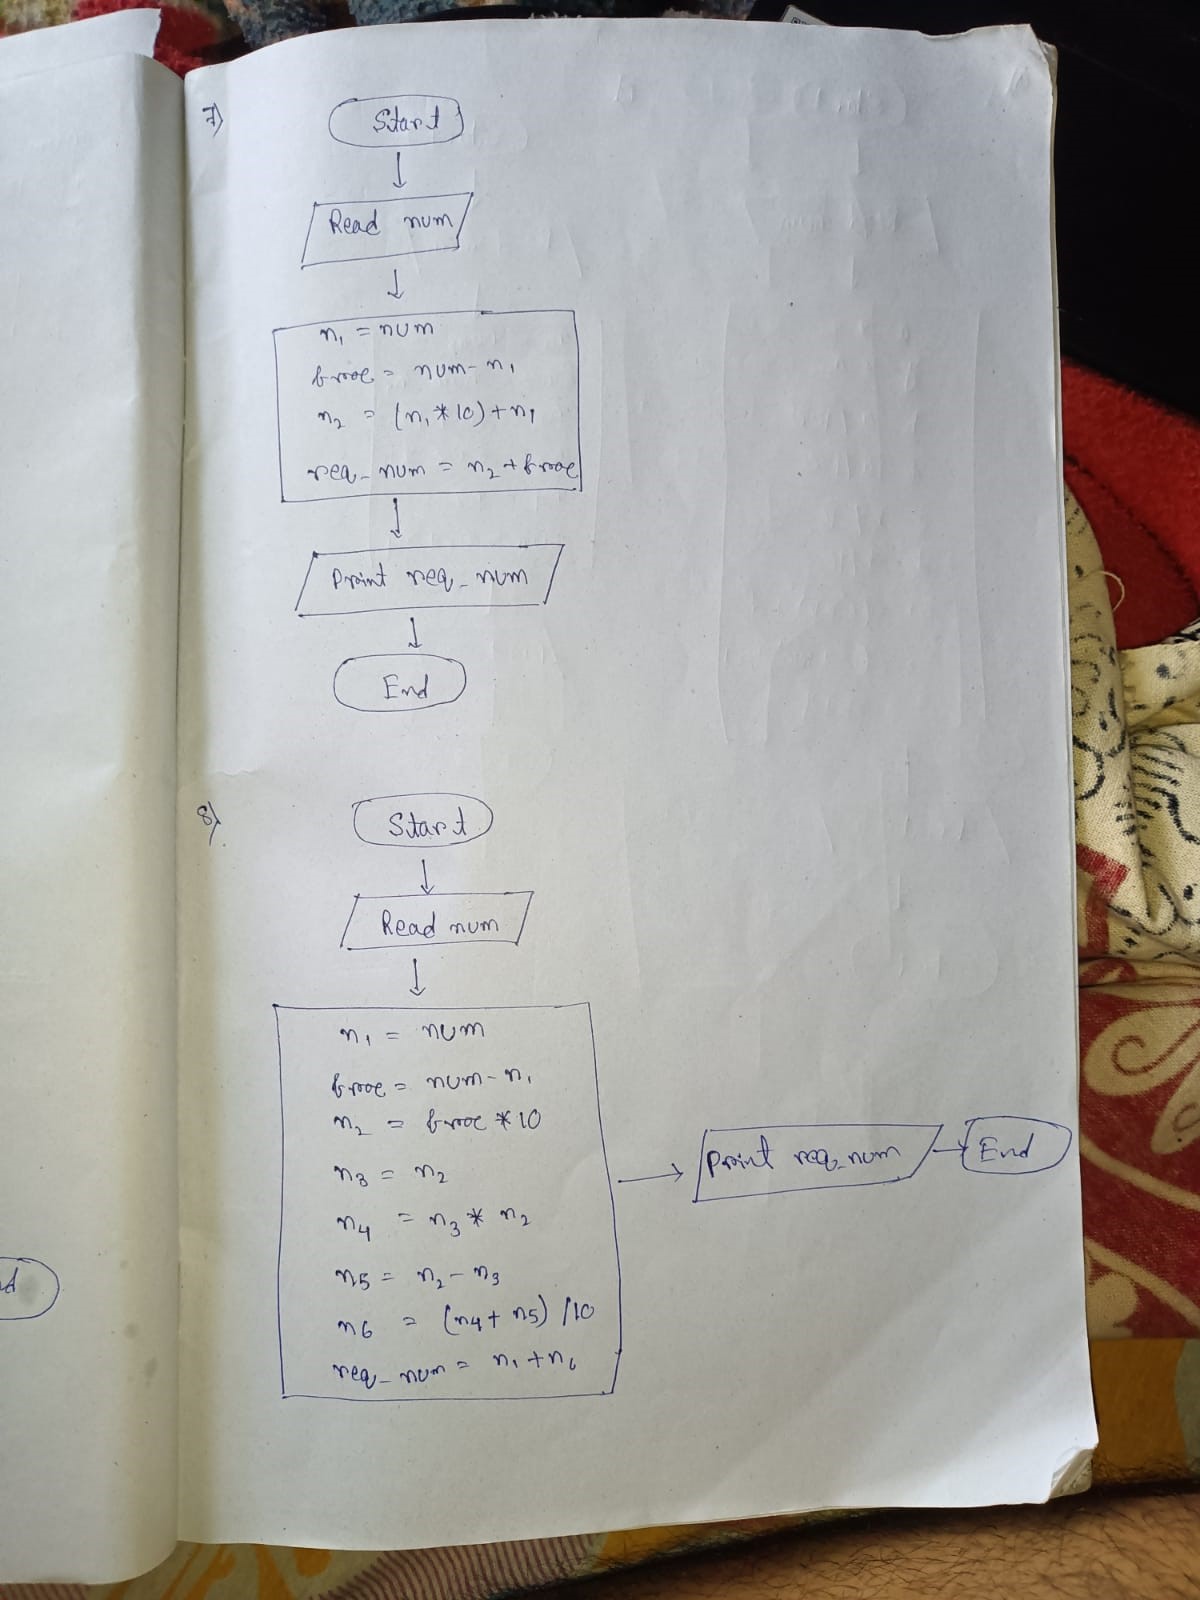 7)
Start
Read num
n1 = num
frac = num - n1
n2 = (n1 * 10) + n1
req_num = n2 + frac
Print req_num
End
8)
Start
Read num
n1 = num
frac = num - n1
n2 = frac * 10
n3 = n2
n4 = n3 * n2
n5 = n2 - n3
n6 = (n4 + n5) / 10
req_num = n1 + n6
Print req_num
End